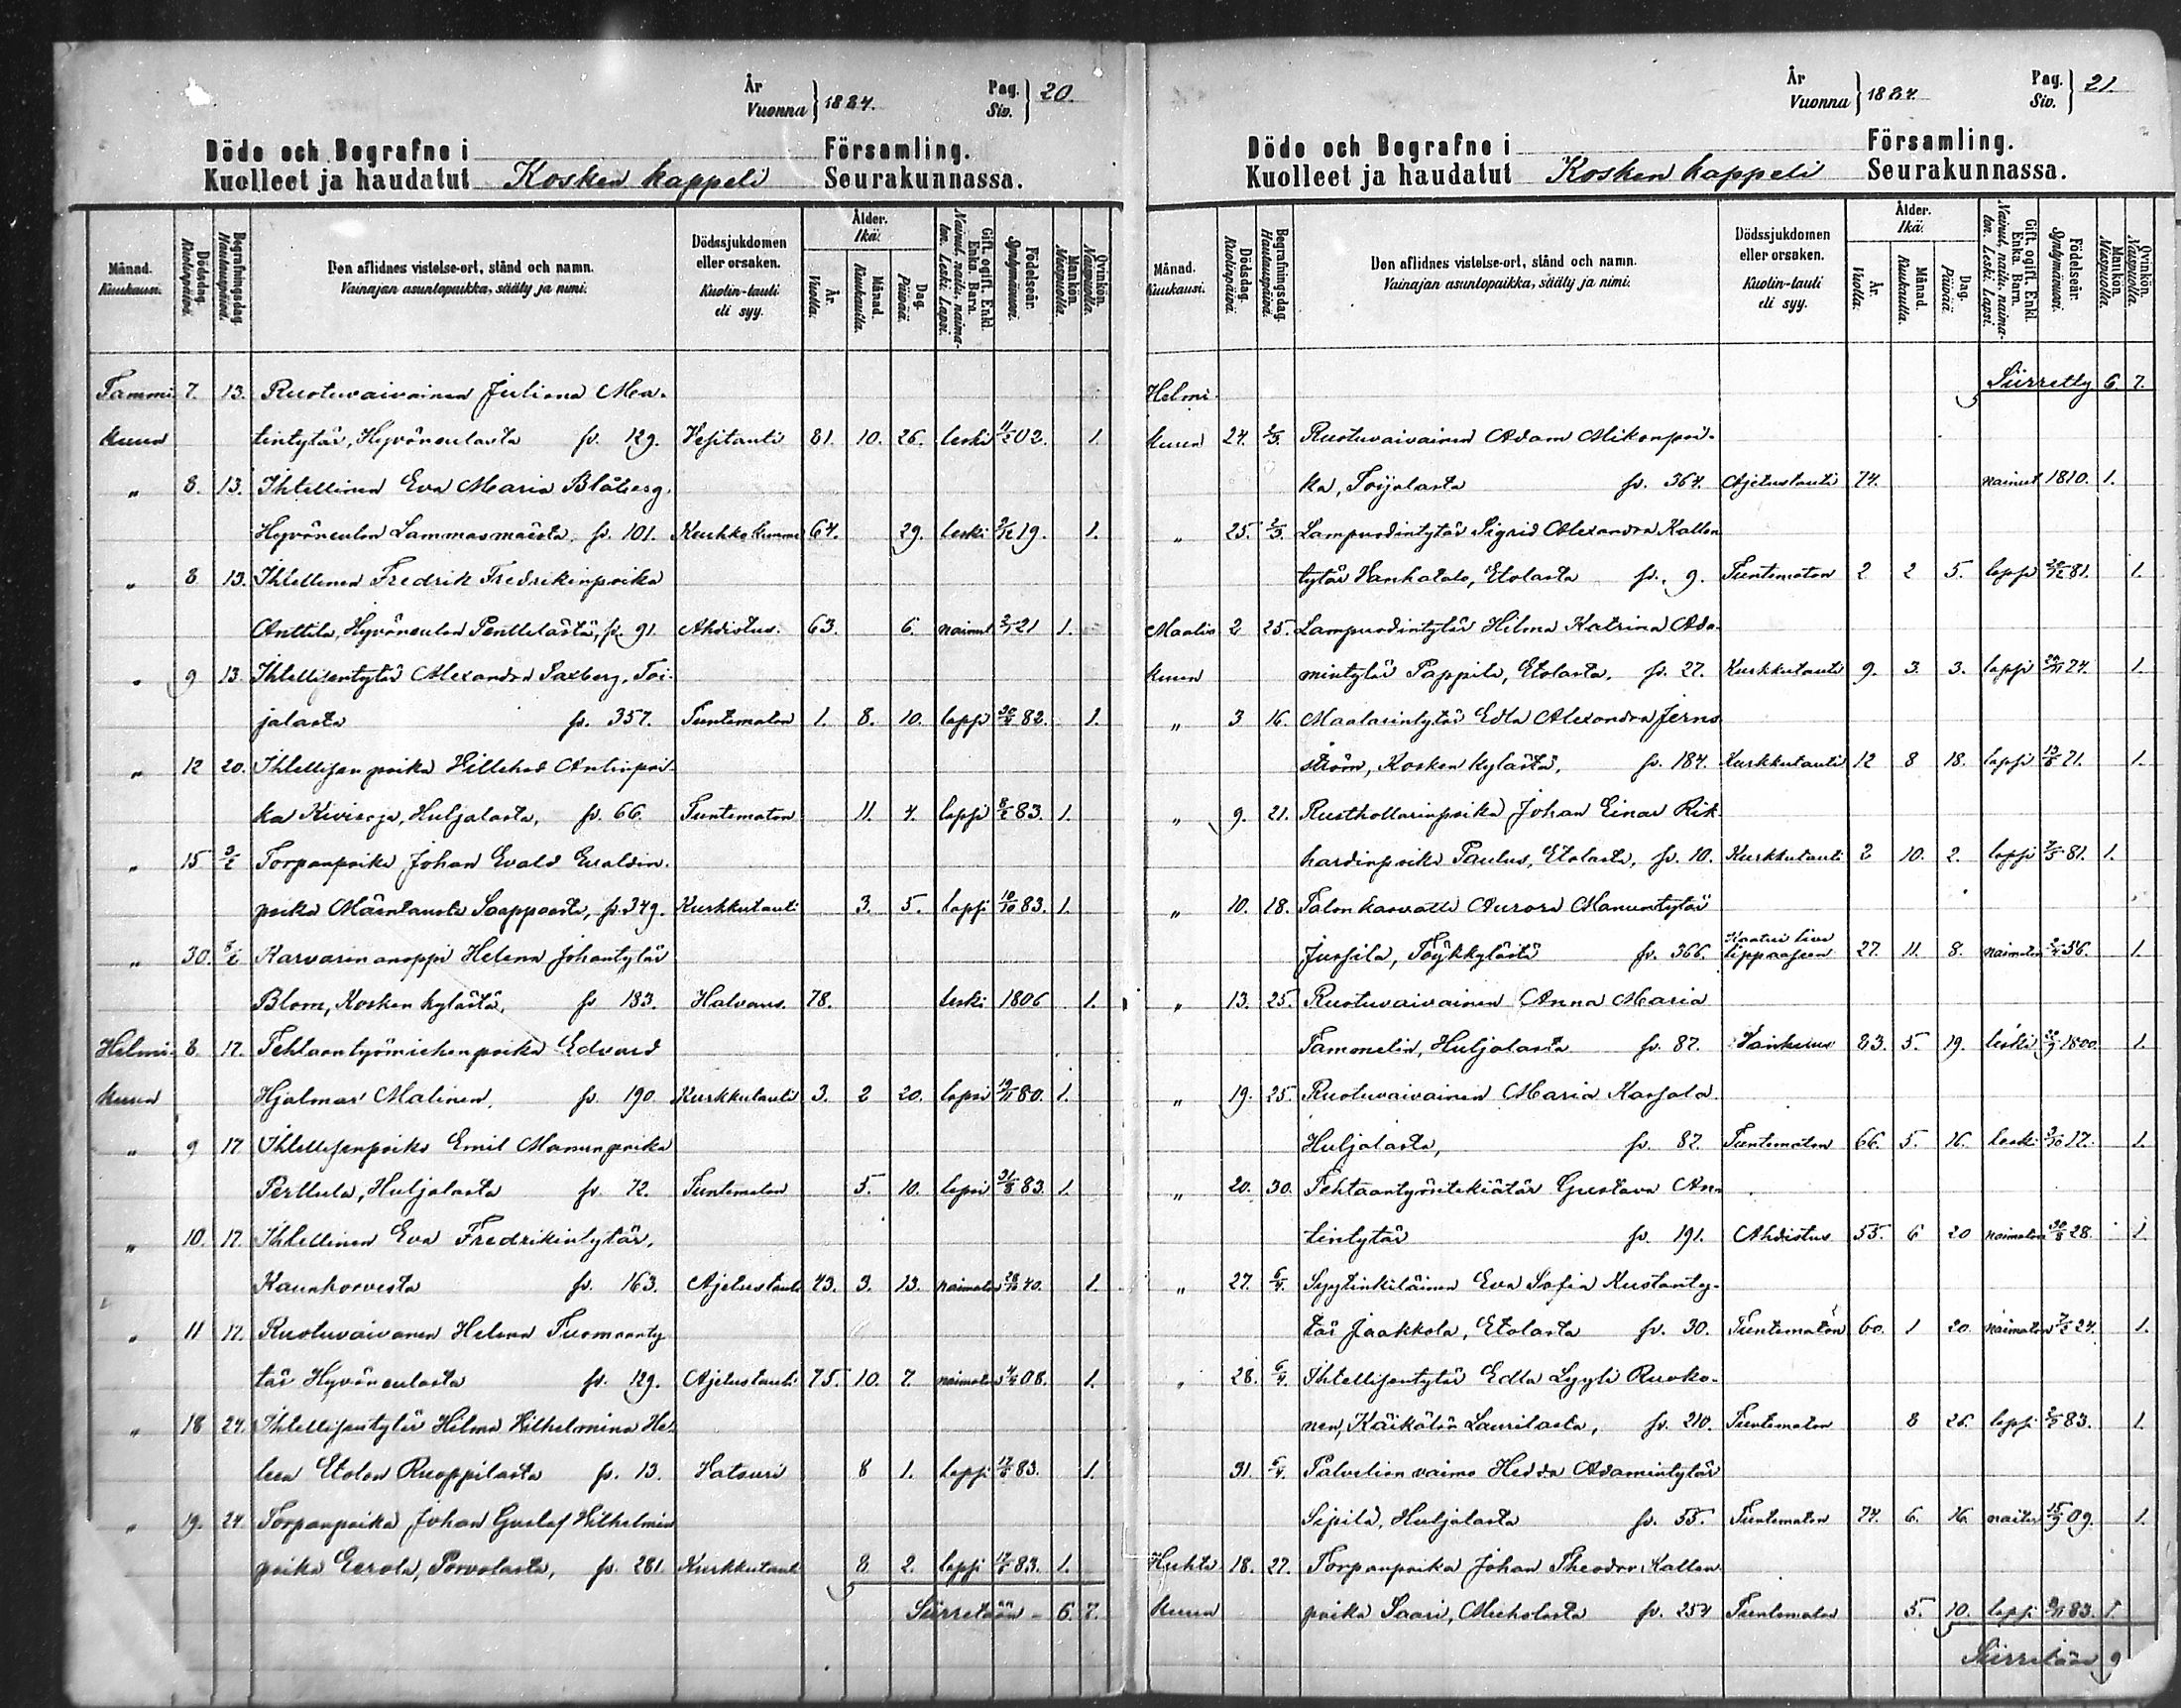 År
Vuonna } 1884.
Pag.
Siv. } 20.
Döde och Begrafne i Församling.
Kuolleet ja haudatut Kosken kappeli Seurakunnassa.
Månad. Kuukausi.
Dödsdag. Kuolinpäivä.
Begrafningsdag. Hautauspäivä.
Den aflidnes vistelse-ort, stånd och namn.
Vainajan asuntopaikka, sääty ja nimi.
Dödssjukdomen eller orsaken.
Kuolin-tauti eli syy.
Ålder. Ikä.
År. Vuotta.
Månad. Kuukautta.
Dag. Päivää.
Gift, ogift. Enkl. Enka. Barn.
Nainut, naitu, naimaton. Leski. Lapsi.
Födelseår. Syntymävuosi.
Mankön. Miespuolia.
Qvinkön. Naispuolia.
Tammi 7. 13. Ruotuvaivainen Juliana Ma-
kuun tintytär, Hyvöneulasta pv. 129. Vesitauti 81. 10. 26. leski 02. 1.
" 8. 13. Ihtellinen Eva Maria Blåberg,
Hyvöneulan Lammasmäestä pv. 101. 64. 29. leski 19. 1.
" 8 13. Ihtellinen Fredrik Fredrikinpoika
Anttila, Hyvöneulan Penttilästä, pv. 91. Ahdistus. 63. 6. nainut 21 1.
" 9 13. Ihtellisentytär Alexandra Saxberg, Toi-
jalasta pv. 357. Tuntematon 1. 8. 10. lapsi 82. 1.
" 12 20. Ihtellisen poika Villehad Antinpoi-
ka Kivioja, Huljalasta, pv. 66. Tuntematon 11. 4. lapsi 8/2 83. 1.
" 15 3/2 Torpanpoika Johan Evald Evaldin-
poika Mäentausta Sorppoosta, pv. 349. Kurkkutauti 3. 5. lapsi 10/10 83. 1.
" 30. Karvarin anoppi Helena Johantytär
Blom, Kosken kylästä, pv 183. Halvaus. 78. leski 1806 1.
Helmi- 8. 17. Tehtaantyömiehenpoika Edvard
kuun Hjalmar Malinen, pv. 190. Kurkkutauti 3. 2 20. lapsi 19/11 80. 1.
" 9 17 Ihtellisenpoika Emil Manunpoika
Perttula, Huljalasta pv. 72. Tuntematon 5. 10. lapsi 31/8 83. 1.
" 10. 17. Ihtellinen Eva Fredrikintytär,
Kaunkorvesta pv. 163. Ajetustauti 43. 3. 13. naimaton 28/10 40. 1.
" 11 17. Ruotuvaivanen Helena Tuomaanty-
tär Hyvöneulasta pv. 129. Ajetustauti 75. 10. 7. naimaton 4/4 08. 1.
" 18 24. Ihtellisentytär Hilma Vilhelmina He-
lena Etolan Ruoppilasta pv. 13. Hatsuri 8 1. lapsi 17/6 83. 1.
" 19. 24. Torpanpoika Johan Gustaf Vilhelmin
poika Eerola, Porvolasta, pv. 281. Kurkkutauti 8. 2. lapsi 17/6 83. 1.
Siirretään - 6. 7.
År
Vuonna } 1884.
Pag.
Siv. } 21.
Döde och Begrafne i Församling.
Kuolleet ja haudatut Kosken kappeli Seurakunnassa.
Månad. Kuukausi.
Dödsdag. Kuolinpäivä.
Begrafningsdag. Hautauspäivä.
Den aflidnes vistelse-ort, stånd och namn.
Vainajan asuntopaikka, sääty ja nimi.
Dödssjukdomen eller orsaken.
Kuolin-tauti eli syy.
Ålder. Ikä.
År. Vuotta.
Månad. Kuukautta.
Dag. Päivää.
Gift, ogift. Enkl. Enka. Barn.
Nainut, naitu, naimaton. Leski. Lapsi.
Födelseår. Syntymävuosi.
Mankön. Miespuolia.
Qvinkön. Naispuolia.
Helmi- Siirretty 6. 7.
kuun 24. 2/3. Ruotuvaivainen Adam Mikonpoi-
ka, Toijalasta pv. 364. Ajetustauti 74. nainut 1810. 1.
" 25. 2/3. Lampuodintytär Sigrid Alexandra Kallen
tytär Vanhatalo, Etolasta pv. 9. Tuntematon 2 2 5. lapsi 20/12 81. 1.
Maalis 2 25. Lampuodintytär Hilma Katrina Ada-
kuun mintytär Pappila, Etolasta, pv. 27. Kurkkutauti 9. 3. 3. lapsi 74. 1.
" 3 16. Maalarintytär Edla Alexandra Jerns
ström, Kosken kylästä, pv. 184. Kurkkutauti 12 8 18. lapsi 71. 1.
" 9. 21. Rusthollarinpoika Johan Einar Rik-
hardinpoika Paulus, Etolasta, pv. 10. Kurkkutauti 2 10. 2. lapsi 7/5 81. 1.
" 10. 18. Talon kasvatti Aurora Manuntytär
Jussila, Töykkylästä pv. 366. 27. 11. 8. naimaton 2/4 56. 1.
" 13. 25. Ruotuvaivainen Anna Maria
Tammelin, Huljalasta pv. 87. Vanhuus 83. 5. 19. leski 1800. 1.
" 19. 25. Ruotuvaivainen Maria Kaajala
Huljalasta, pv. 87. Tuntematon 66. 5. 16. leski 3/10 17. 1.
" 20. 30. Tehtaantyöntekiätär Gustava An-
tintytär pv. 191. Ahdistus 55. 6 20 naimaton 30/8 28. 1.
" 27. 6/4. Syytinkiläinen Eva Sofia Kustanty-
tär Jaakkola, Etolasta pv. 30. Tuntematon 60. 1 20 naimaton 7/2 24. 1.
" 28. 6/4. Ihtellisentytär Edla Lyyli Ruoko-
nen, Käikälän Laurilasta, pv. 210. Tuntematon 8 26. lapsi 83. 1.
31. 6/4. Palvelian vaimo Hedda Adamintytär
Sipilä, Huljalasta pv. 55. Tuntematon 74. 6. 16. naitu 15/9 09. 1.
Huhti- 18. 27. Torpanpoika Johan Theodor Kallen
kuun poika Saari, pv. 254 Tuntematon 5. 10. lapsi 8/11 83. 1.
Siirretään 9